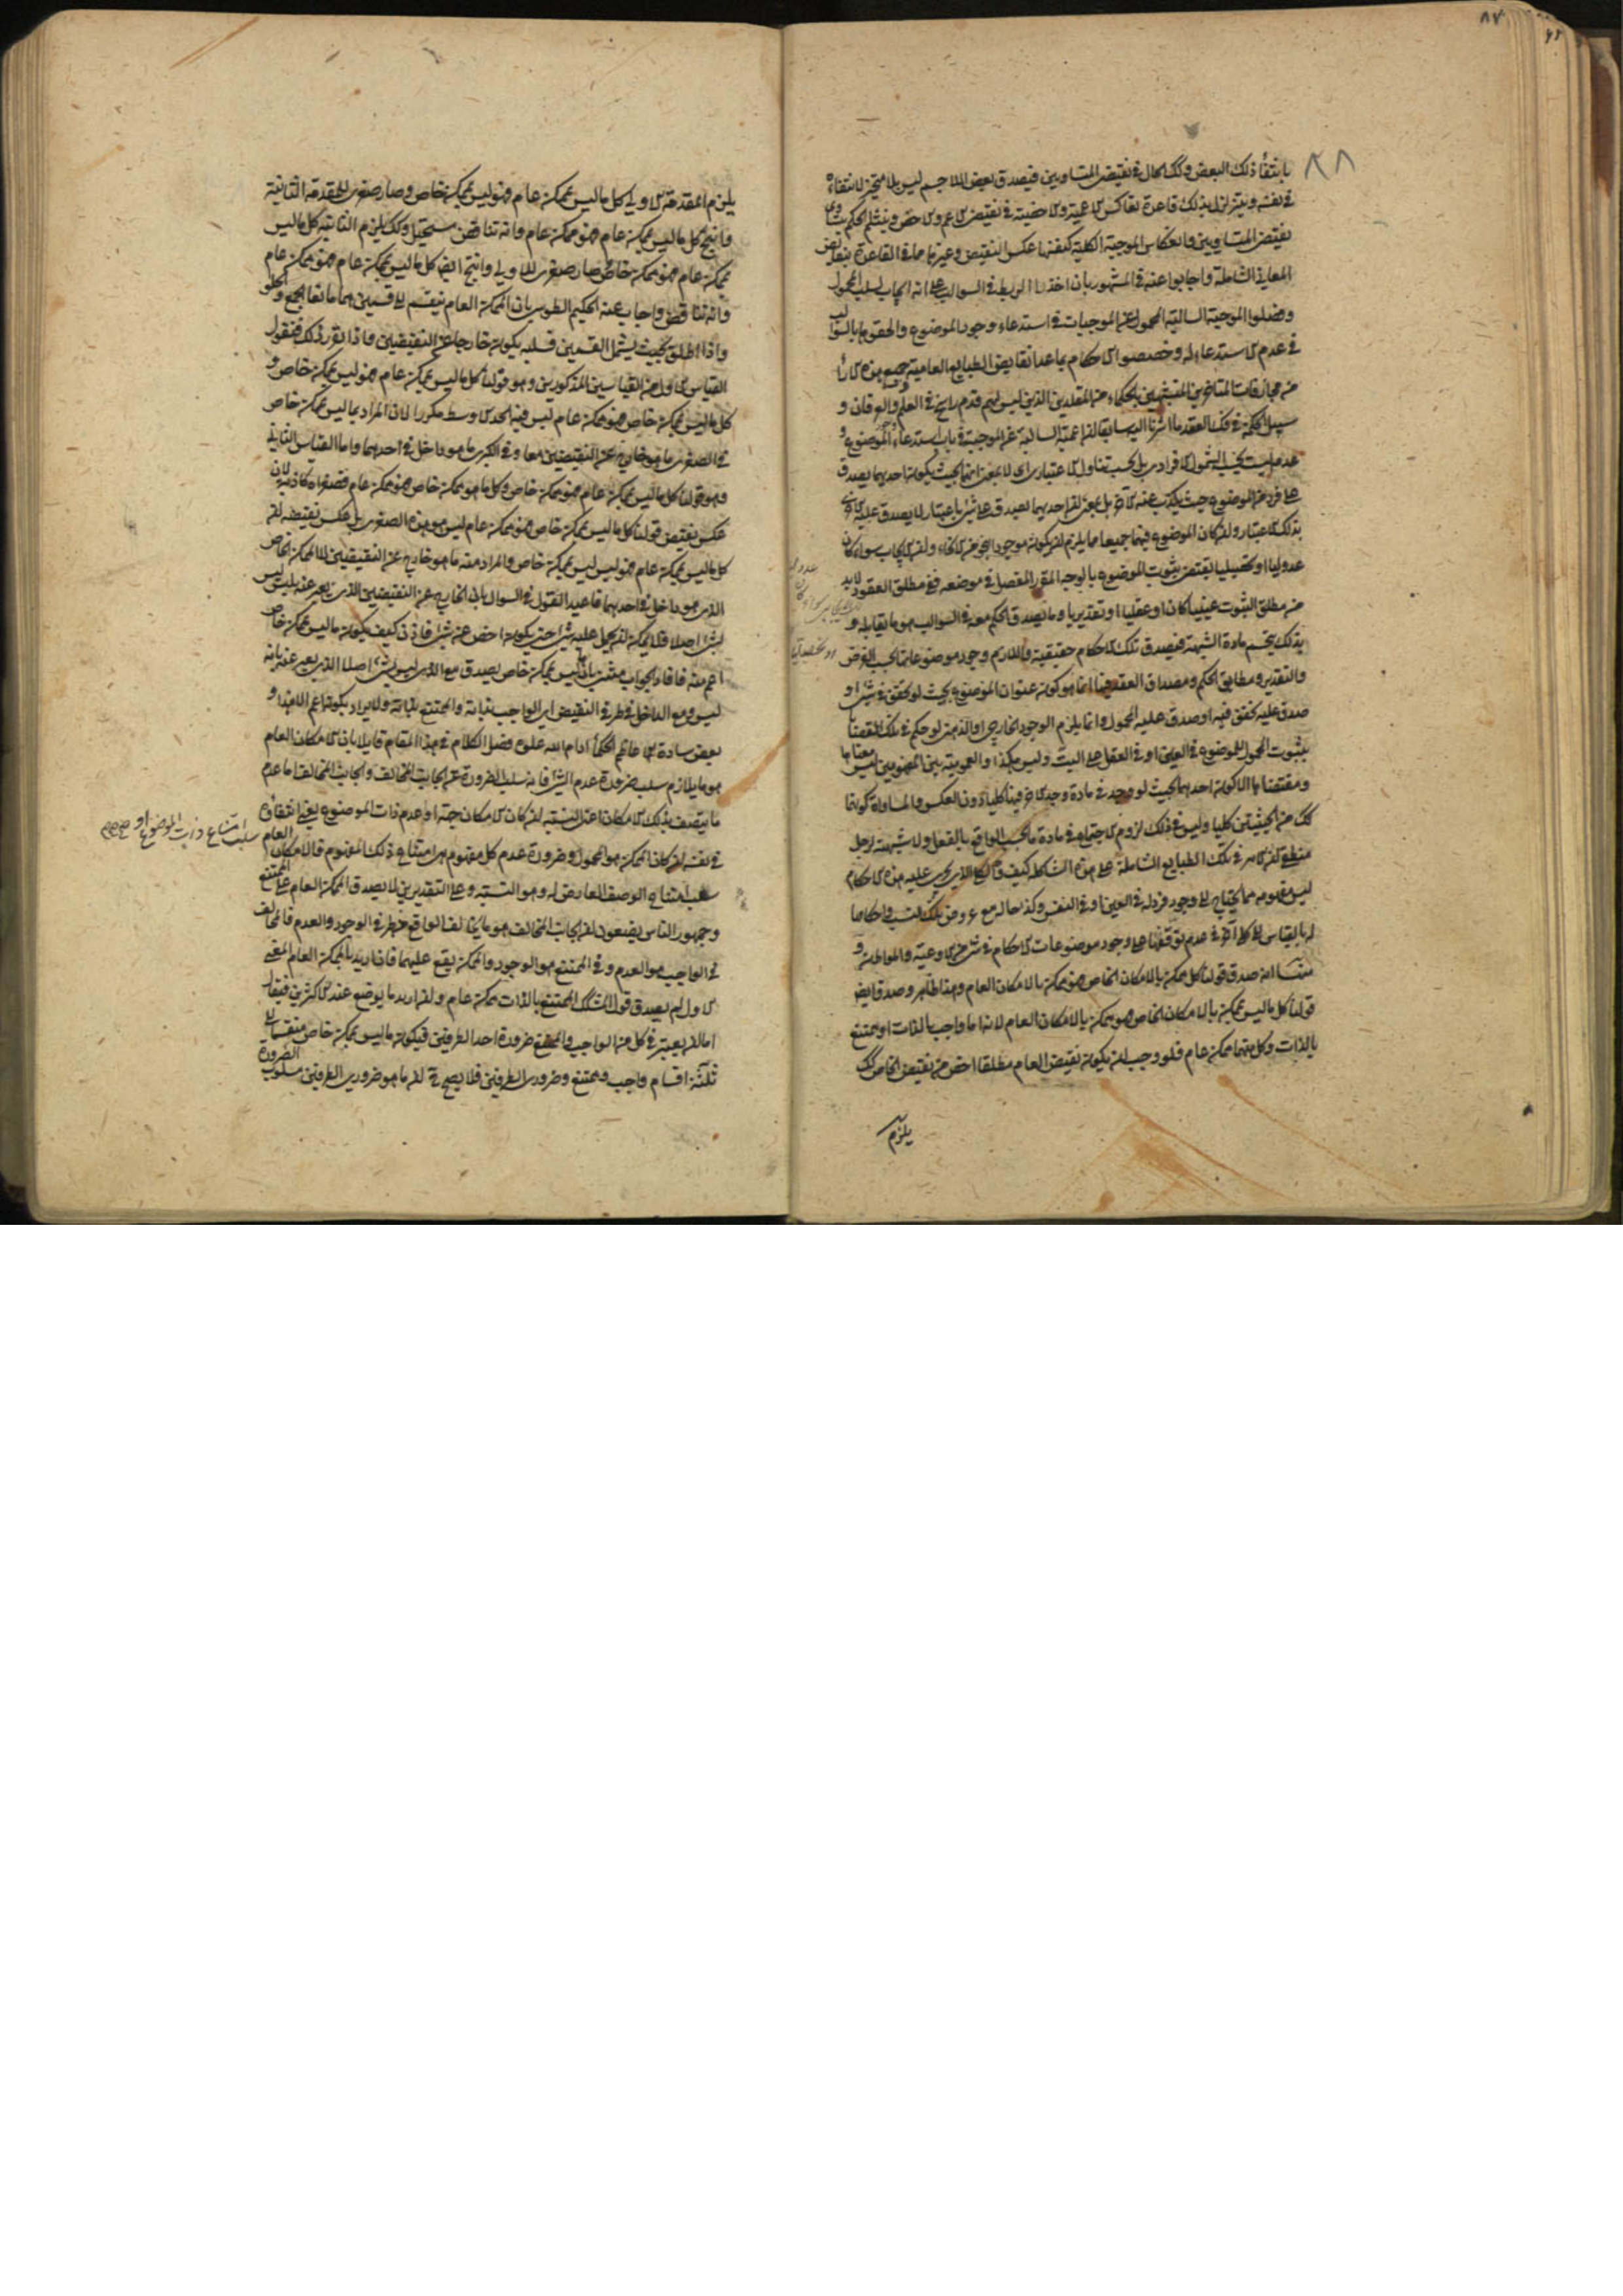 ٨٧
بانتفاء ذلك البعض وكك الحال فى نقيض المتساويين فيصدق بعض اللا جسم ليس بلا متحيز لانتفاءه
فى نفسه ويتزلزل بذلك قاعدة تعاكس الاعمية والاخصية فى نقيض الاعم والاخص وينثلم الحكم بتساوى
نقيض المتساويين وانعكاس الموجبة الكلية كنفسها عكس النقيض وغيرها مادة القاعدة بنقايض
المعانى الشاملة واجابوا عنه فى المشهور بان اخذ الربط فى السوالب على انه ايجاب لسلب المحمول
وفضلوا الموجبة السالبة المحمول عن الموجبات فى استدعاء وجود الموضوع والحقوها بالسوالب
فى عدم الاستدعاء له وخصصوا الاحكام بما عدا نقايض الطبايع العامية جميع هذه الآراء
من مجازفات المتاخرين المتشبهين بالحكماء من المقلدين الذين ليس لهم قدم راسخ فى العلم والعرفان و
سبيل الحكمة فى فك العقد ما اشرنا اليه سابقا ان اعمية السالبة عن الموجبة فى باب استدعاء الموضوع و
عدمه ليست بحسب الشمول الافرادى بل بحسب تناول الاعتبارى اى لا بمعنى انها بحيث يكون احديهما يصدق
على فرد من الموضوع حيث يكذب عنه الآخر بل بمعنى ان احديهما يصدق على شئ باعتبار لا يصدق عليه الاخرى
بذلك الاعتبار وان كان الموضوع فيهما جميعا مما يلزم ان يكون موجودا بنحو من الانحاء وان الايجاب سواء كان
عدوليا او تحصيليا يقتضى ثبوت الموضوع بالوجه المقرر المفصل فى موضعه ففى مطلق العقود لابد
من مطلق الثبوت عينيا كان او عقليا او تقديريا وما يصدق الحكم معه فى السوالب هو ما يقابله و
بذلك ينحسم مادة الشبهة فيصدق تلك الاحكام حقيقية واللازم وجود موضوعاتها بحسب الفرض
والتقدير ومطابق الحكم ومصداق العقد ههنا انما هو كون عنوان الموضوع بحيث لو تحقق فى شئ او
صدق عليه تحقق فيه او صدق عليه المحمول وانما يلزم الوجود الخارجى او الذهنى لو حكم فى تلك القضايا
بثبوت المحمول للموضوع فى العين او فى العقل على البت وليس هكذا والعمومية بين المفهومين ليس معناها
ومقتضاها الا كون احدهما بحيث لو وجد فى مادة وجد الآخر فيها كليا دون العكس والمساواة كونهما
كك من الحيثيتين كليا وليس فى ذلك لزوم الاجتماع فى مادة ما بحسب الواقع بالفعل ولا شبهة لرجل
منطقى ان الامر فى تلك الطبايع الشاملة على هذه الشاكلة كيف والكلى الذى يجرى عليه هذه الاحكام
ليس مفهومه مما يحتاج الى وجود فرد له فى العين او فى النفس وكذا حاله مع عروض تلك النسب واحكامها
له بالقياس الى كلى آخر فى عدم توقفها على وجود موضوعات الاحكام
منها انه صدق قولنا كل ممكن بالامكان الخاص هو ممكن بالامكان العام وهذا ظاهر وصدق ايض
قولنا كل ما ليس بممكن بالامكان الخاص هو ممكن بالامكان العام لانه اما واجب بالذات او ممتنع
بالذات وكل منهما ممكن عام فلو وجب ان يكون نقيض العام مطلقا اخص من نقيض الخاص لكك
يلزم
يلزم المقدمة الاولى كل ما ليس بممكن عام فهو ليس بممكن خاص وصار صغرى للمقدمة الثانية
وانتج كل ما ليس بممكن عام فهو ممكن عام وانه تناقض مستحيل وكك يلزم الثانية كل ما ليس
بممكن عام فهو ممكن خاص صار صغرى للاولى وانتج ايض كل ما ليس بممكن عام فهو ممكن عام
وانه تناقض واجاب عنه الحكيم الطوسى بان الممكن العام ينقسم الى قسمين هما مانعا الجمع والخلو
واذا اطلق بحيث يشمل القسمين فسلبه يكون خارجا عن النقيضين واذا تقرر ذلك فنقول
القياس الاول من القياسين المذكورين وهو قولنا كل ما ليس بممكن عام فهو ليس بممكن خاص و
كل ما ليس بممكن خاص فهو ممكن عام ليس فيه الحد الاوسط مكررا لان المراد بما ليس بممكن خاص
فى الصغرى ما هو خارج عن النقيضين معا وفى الكبرى ما هو داخل فى احدهما واما القياس الثانى
وهو قولنا كل ما ليس بممكن عام فهو ممكن خاص وكل ما هو ممكن خاص فهو ممكن عام فصغراه كاذبة لان
عكس نقيض قولنا كل ما ليس بممكن خاص فهو ممكن عام ليس هو هذه الصغرى بل عكس نقيضه ان
كل ما ليس بممكن عام فهو ليس ليس بممكن خاص والمراد منه ما هو خارج عن النقيضين لا الممكن الخاص
الذى هو داخل فى احدهما فاعيد القول فى السؤال بان الخارج عن النقيضين الذى يعبر عنه بليس ليس
بشئ اصلا فلا يمكن ان يحمل عليه شئ حتى يكون اخص من شئ فاذن كيف يكون ما ليس بممكن خاص
اعم منه فافاد الجواب مثنى بان ما ليس بممكن خاص يصدق مع الذى ليس بشئ اصلا الذى يعبر عنه بانه
ليس ومع الداخل فى طرفى النقيض اى الواجب بذاته والممتنع بذاته ولا يراد بكونه اعم الا هذا و
بعض سادة اعاظم الحكماء ادام الله علوه فصل الكلام فى هذا المقام قايلا بان الامكان العام
هو ما يلازم سلب ضرورة عدم الشئ فانه سلب الضرورة عن الجانب المخالف والجانب المخالف اما عدم
ما يتصف بذلك الامكان اعنى النسبة ان كان الامكان جهة او عدم ذات الموضوع يعنى انتفاؤه
فى نفسه ان كان الممكن هو المحمول وضرورة عدم كل مفهوم هى امتناع ذلك المفهوم فالامكان العام
سلب امتناع الوصف العارض له وهو النسبة وعلى التقديرين لا يصدق الممكن العام على الممتنع
وجمهور الناس يضعون ان الجانب المخالف هو ما يخالف الواقع فى الوجود والعدم فالمخالف
فى الواجب هو العدم وفى الممتنع هو الوجود والممكن يقع عليهما فان اريد بالممكن العام المعنى
الاول لم يصدق قول المشكك الممتنع بالذات ممكن عام وان اريد ما يوضع عند الاكثرين فيقال
اما ان يعتبر فى كل من الواجب والممتنع ضرورة احد الطرفين فيكون ما ليس بممكن خاص منقسما الى
ثلثة اقسام واجب وممتنع وضرورى الطرفين فلا يصح ان ما هو ضرورى الطرفين مسلوب الضرورة
سلب امتناع ذات الموضوع او صح